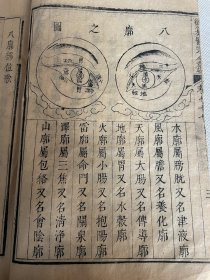 八廓之圖
水廓屬膀胱又名津液廓
風廓屬膽又名養化廓
天廓屬大腸又名傳導廓
地廓屬胃又名水穀廓
火廓屬小腸又名抱陽廓
雷廓屬命門又名關泉廓
澤廓屬三焦又名清淨廓
山廓屬包絡又名會陰廓
八廓